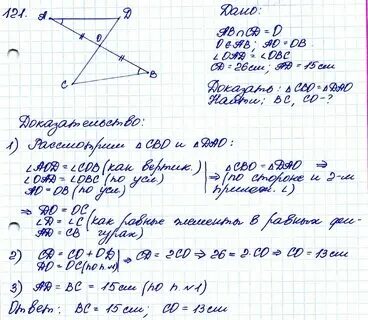 121.
A D O C B
Дано:
AB∩CD=O
O∈AB; AO=OB
∠OAD=∠OBC
CD=26см, AD=15см
Доказать: △CBO=△DAO
Найти: BC, CO-?
Доказательство:
1) Рассмотрим △CBO и △DAO:
∠AOD=∠COB (как вертик.)
∠OAD=∠OBC (по усл)
AO=OB (по усл)
⇒ △CBO=△DAO ⇒
⇒ (по стороне и 2-м
прилеж. ∠)
⇒ DO=OC
∠D=∠C (как равные элементы в равных фи-
AD=CB гурах)
2) CD=CO+OD
DO=OC (по п.1) ⇒ CD=2CO ⇒ 26=2·CO ⇒ CO=13см
3) AD=BC=15см (по п.№1)
Ответ: BC=15см; CO=13см